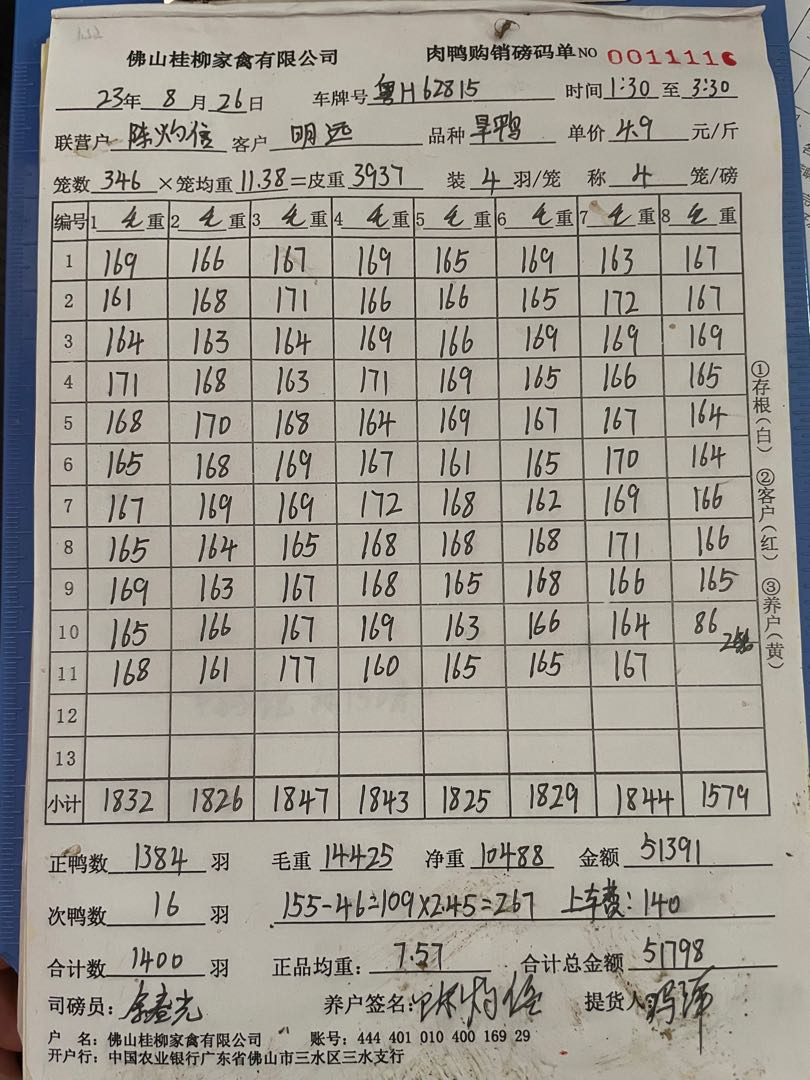 佛山桂柳家禽有限公司 肉鸭购销磅码单 NO 0011116
23年 8月 26日 车牌号 粤H62815 时间 1:30 至 3:30
联营户 陈灼信 客户 明远 品种 旱鸭 单价 4.9 元/斤
笼数 346 ×笼均重 11.38 =皮重 3937 装 4 羽/笼 称 4 笼/磅
编号 1 毛重 2 毛重 3 毛重 4 毛重 5 毛重 6 毛重 7 毛重 8 毛重
1 169 166 167 169 165 169 163 167
2 161 168 171 166 166 165 172 167
3 164 163 164 169 166 169 169 169
4 171 168 163 171 169 165 166 165
5 168 170 168 164 169 167 167 164
6 165 168 169 167 161 165 170 164
7 167 169 169 172 168 162 169 166
8 165 164 165 168 168 168 171 166
9 169 163 167 168 165 168 166 165
10 165 166 167 169 163 166 164 86
11 168 161 177 160 165 165 167
12
13
小计 1832 1826 1847 1843 1825 1829 1844 1579
①存根(白) ②客户(红) ③养户(黄)
正鸭数 1384 羽 毛重 14425 净重 10488 金额 51391
次鸭数 16 羽 155-46=109×2.45=267 上车费:140
合计数 1400 羽 正品均重: 7.57 合计总金额 51798
司磅员: 养户签名: 陈灼信 提货人
户 名: 佛山桂柳家禽有限公司 账号: 444 401 010 400 169 29
开户行: 中国农业银行广东省佛山市三水区三水支行